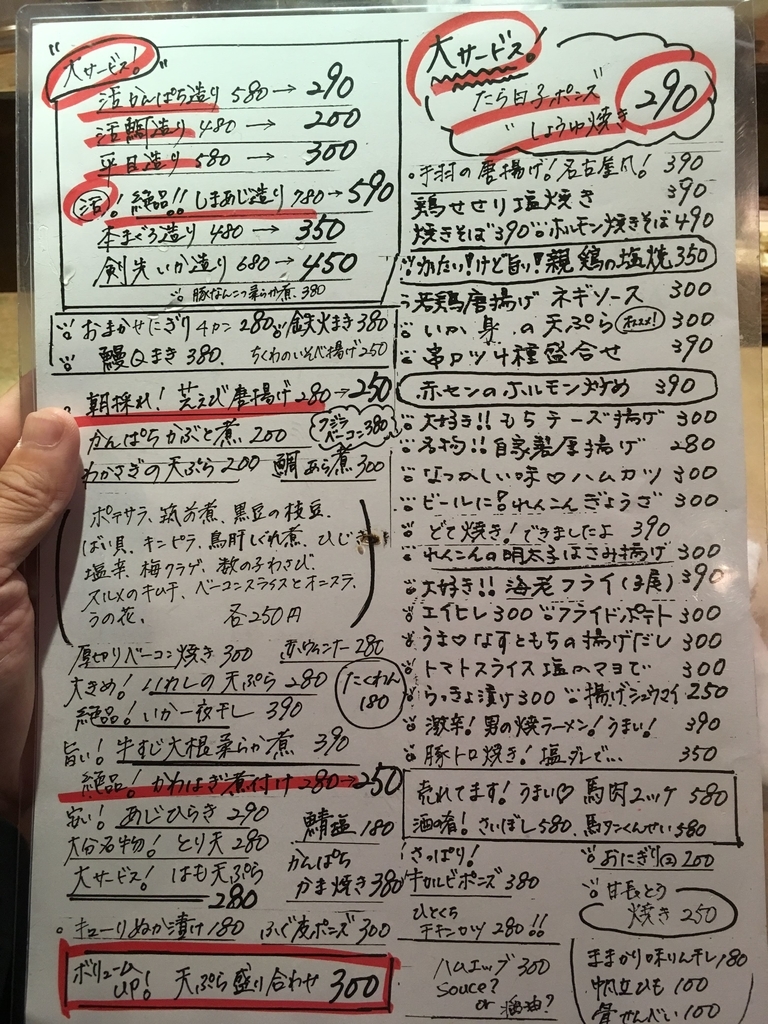 "大サービス!"
活かんぱち造り 580→290
活鯛造り 480→200
平目造り 580→300
活! 絶品!! しまあじ造り 780→590
本まぐろ造り 480→350
剣先いか造り 680→450
豚なんこつ柔らか煮 380
おまかせにぎり4カン 280 鉄火まき 380
鰻Qまき 380. ちくわのいそべ揚げ 250
朝採れ! 芝えび唐揚げ 280→250
かんぱちかぶと煮 200
クジラベーコン 380
わかさぎの天ぷら 200 鯛あら煮 300
ポテサラ、筑前煮、黒豆の枝豆、
ばい貝、キンピラ、鳥肝しぐれ煮、ひじき
塩辛、梅クラゲ、数の子わさび、
スルメのキムチ、ベーコンスライスとオニスラ、
うの花、 各250円
厚切りベーコン焼き 300 赤ウィンナー 280
大きめ! いわしの天ぷら 280
たくわん 180
絶品! いか一夜干し 390
旨い! 牛すじ大根柔らか煮 390
絶品! かわはぎ煮付け 280→250
安い! あじひらき 290
鯖塩 180
大分名物! とり天 280
かんぱちかま焼き 380
大サービス! はも天ぷら 280
キューリぬか漬け 180 ふぐ皮ポンズ 300
ボリュームUP! 天ぷら盛り合わせ 300
大サービス!
たら白子ポンズ
〃 しょうゆ焼き 290
手羽の唐揚げ! 名古屋風! 390
鶏せせり塩焼き 390
焼きそば 390 ホルモン焼きそば 490
かたい!けど旨い! 親鶏の塩焼 350
若鶏唐揚げ ネギソース 300
いか の天ぷら オススメ! 300
串カツ4種盛合せ 390
赤センのホルモン炒め 390
大好き!! もちチーズ揚げ 300
名物!! 自家製厚揚げ 280
なつかしい味♡ハムカツ 300
ビールに! れんこんぎょうざ 300
どて焼き! できましたよ 390
れんこんの明太子はさみ揚げ 300
大好き!! 海老フライ(3尾) 390
エイヒレ 300 フライドポテト 300
うま♡なすともちの揚げだし 300
トマトスライス 塩orマヨで 300
らっきょ漬け 300 揚げシュウマイ 250
激辛! 男の焼ラーメン! うまい! 390
豚トロ焼き! 塩ダレで… 350
売れてます! うまい♡ 馬肉ユッケ 580
酒の肴! さいぼし 580. 馬タンくんせい 580
さっぱり!
牛カルビポンズ 380
おにぎり 200
甘長とう焼き 250
ひとくちチキンカツ 280!!
ハムエッグ 300
souce?
or 醤油?
ままかり味りん干し 180
帆立ひも 100
骨せんべい 100